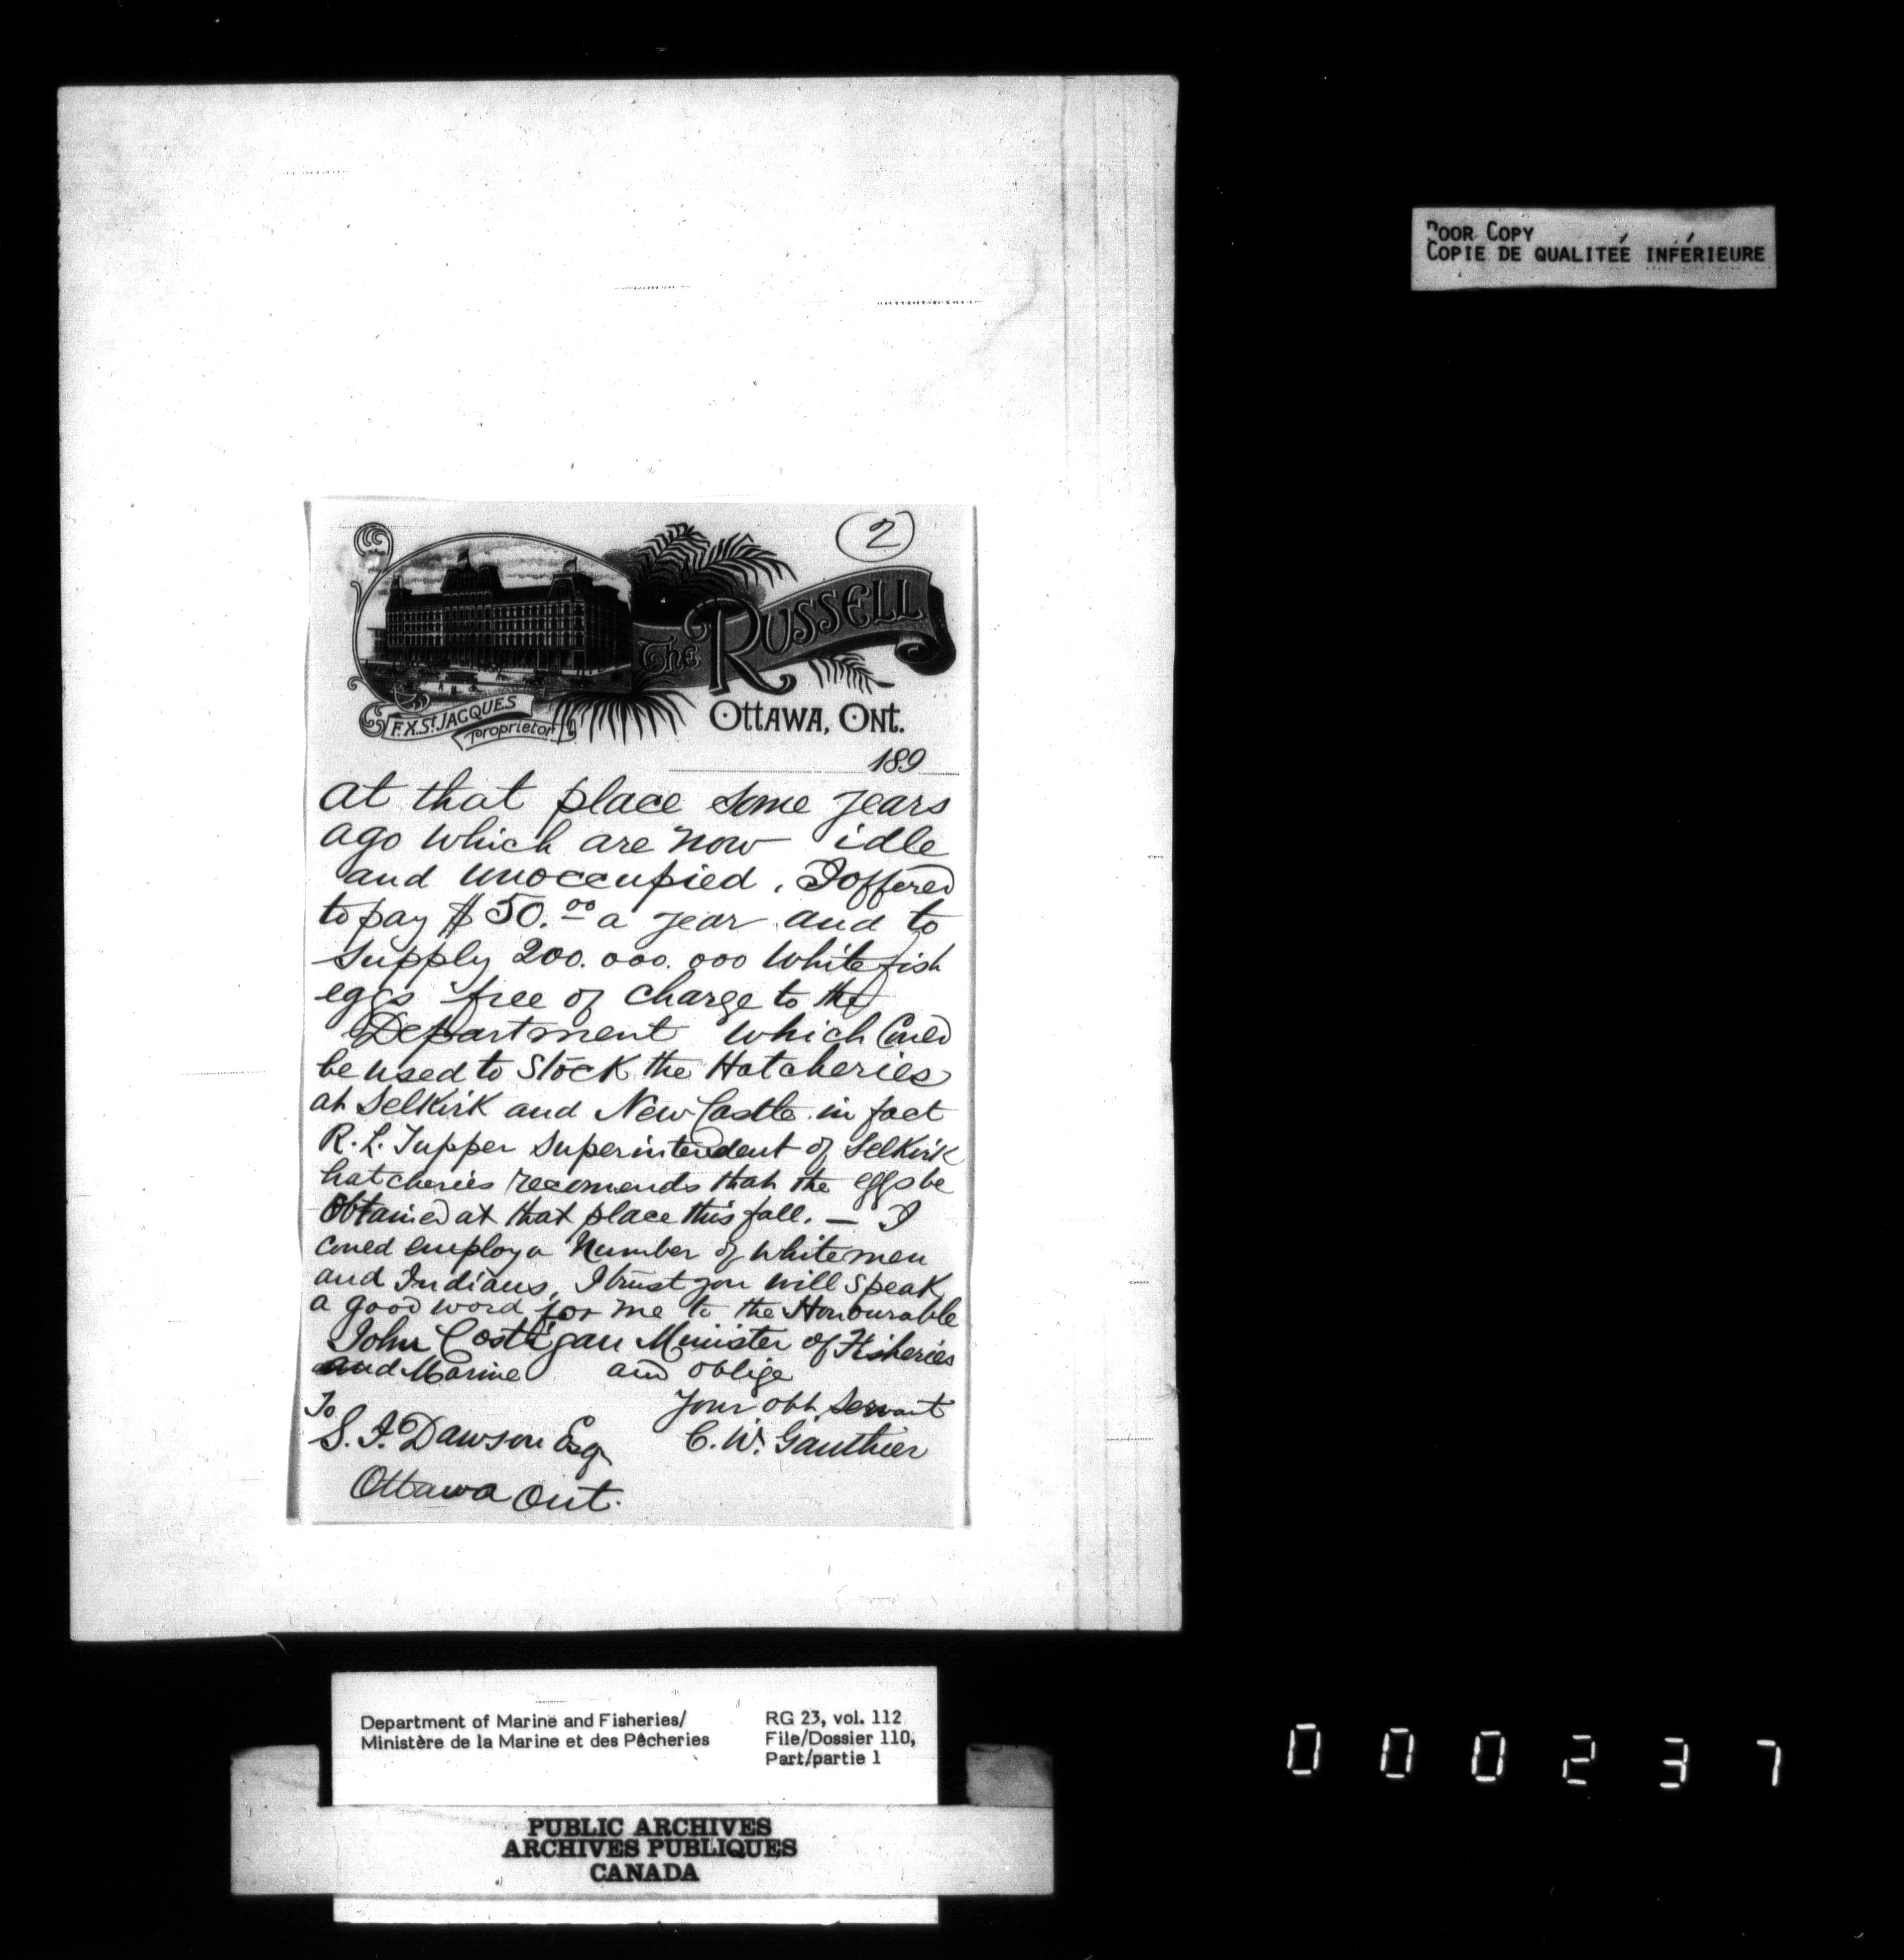 POOR COPY
COPIE DE QUALITÉE INFÉRIEURE
2
The RUSSELL
F.X. St. JACQUES
Proprietor
OTTAWA, ONT.
189
at that place some years
ago which are now idle
and unoccupied. I offered
to pay $50.00 a year and to
supply 200.000.000 white fish
eggs free of charge to the
Department which Coued
be used to Stock the Hatcheries
at Selkirk and New Castle in fact
R. L. Tupper Superintendent of Selkirk
hatcheries recomends that the eggs be
Obtained at that place this fall. — I
coued employ a Number of white men
and Indians, I trust you will speak
a good word for me to the Honourable
John Costigan Minister of Fisheries
and Marine and oblige
Your obt servant
To
S. J. Dawson Esq C. W. Gauthier
Ottawa Ont.
Department of Marine and Fisheries/
Ministère de la Marine et des Pêcheries
RG 23, vol. 112
File/Dossier 110,
Part/partie 1
PUBLIC ARCHIVES
ARCHIVES PUBLIQUES
CANADA
000237